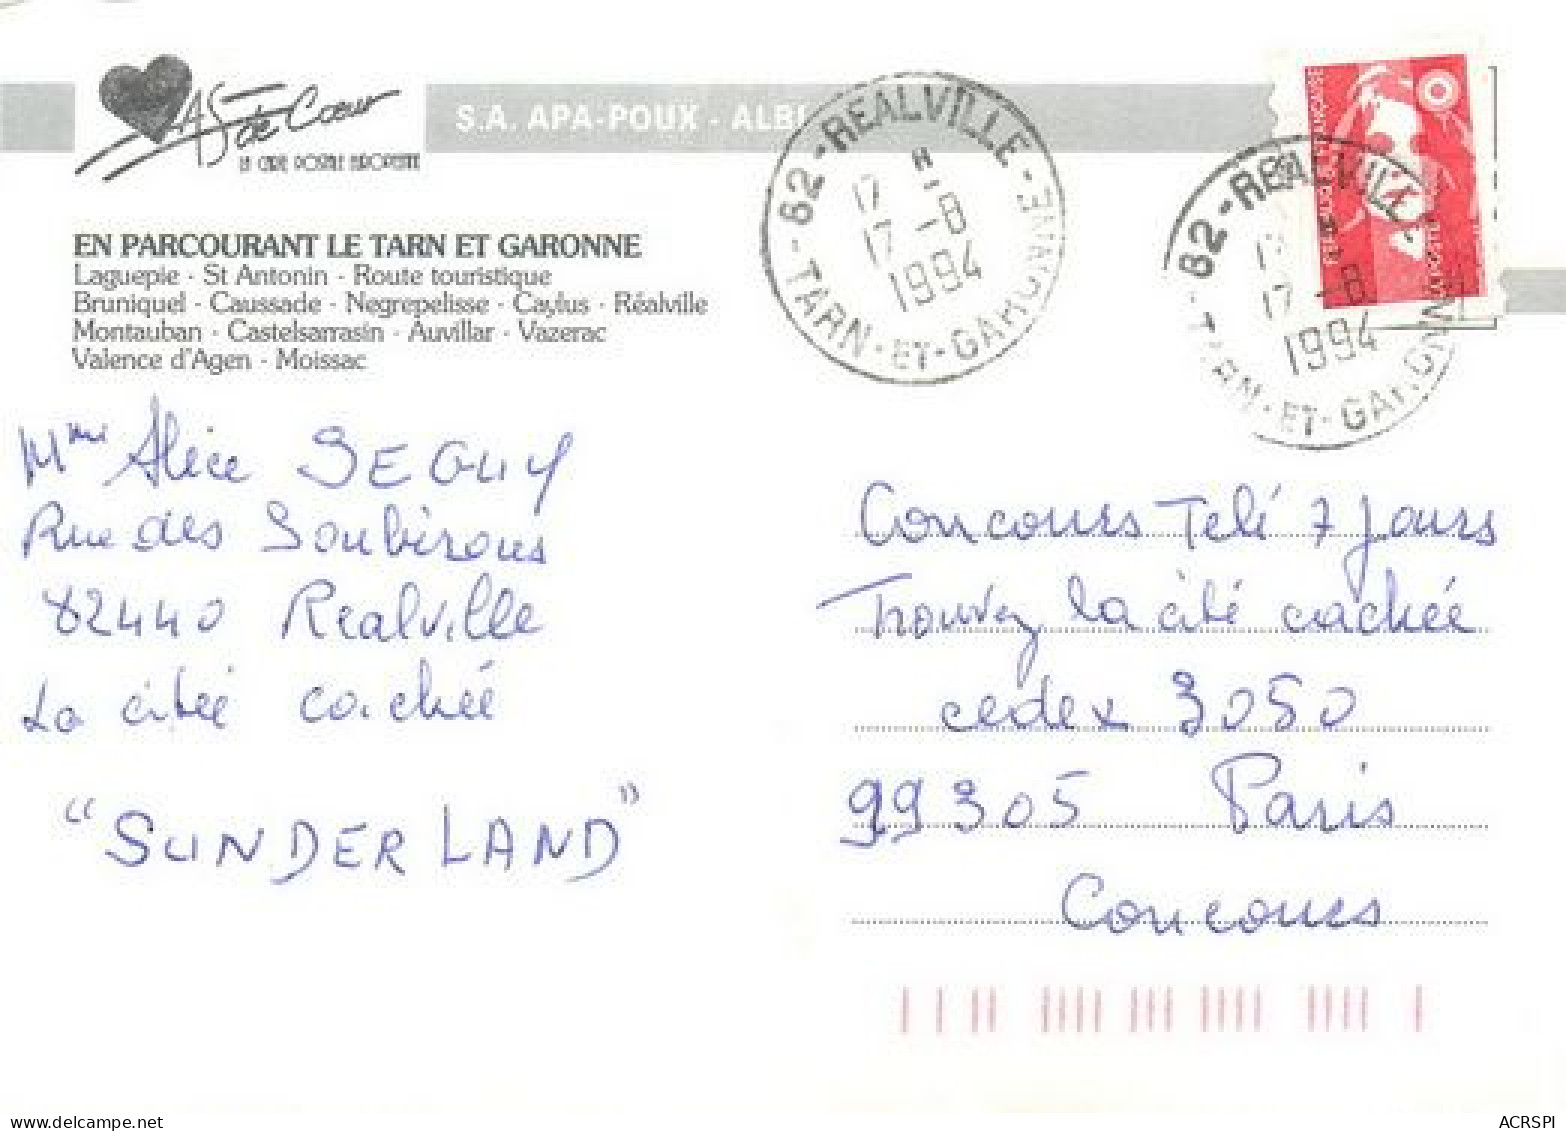 AS de Coeur
LA CARTE POSTALE EUROPEENNE
S.A. APA-POUX - ALBI
EN PARCOURANT LE TARN ET GARONNE
Laguepie - St Antonin - Route touristique
Bruniquel - Caussade - Negrepelisse - Caylus - Réalville
Montauban - Castelsarrasin - Auvillar - Vazerac
Valence d'Agen - Moissac
82 - REALVILLE -
TARN - ET - GARONNE
17 H
17 - 8
1994
82 - REALVILLE -
TARN - ET - GARONNE
17
17 - 8
1994
REPUBLIQUE FRANÇAISE
LA POSTE
Mme Alice SEGUY
Rue des Soubirous
82440 Realville
La citée cachée
"SUNDERLAND"
Concours Telé 7 Jours
Trouvez la cité cachée
cedex 3050
99305 Paris
Concours
www.delcampe.net
ACRSPI